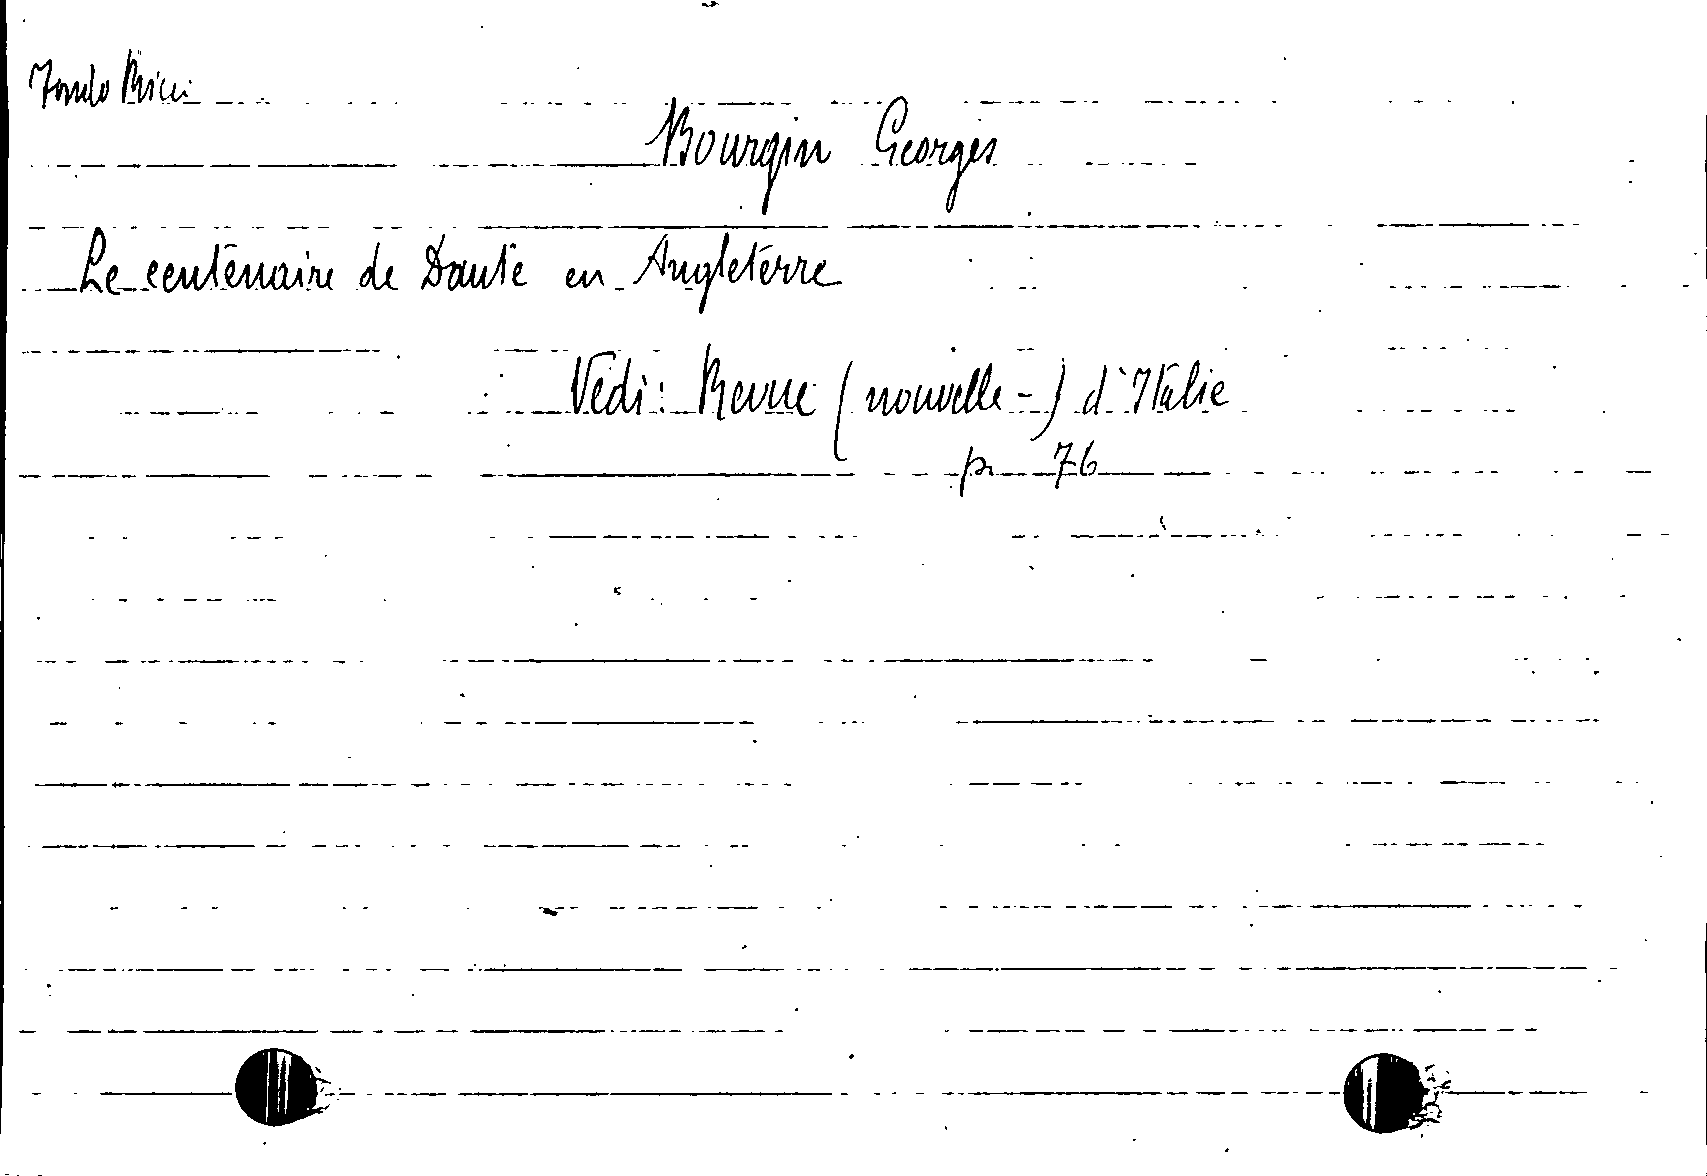 Fondo Ricci
Bourgin Georges
Le centenaire de Dante en Angleterre
Vedi: Revue (nouvelle-) d'Italie
p. 76